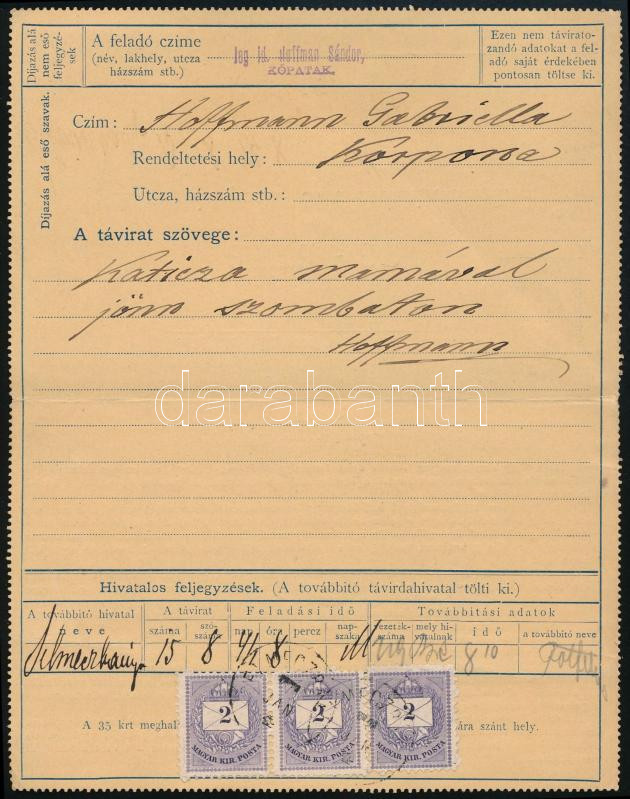 Díjazás alá nem eső feljegyzések
A feladó czime
(név, lakhely, utcza házszám stb.)
Ifg id. Hoffman Sándor,
KÓPATAK.
Ezen nem táviratozandó adatokat a feladó saját érdekében pontosan töltse ki.
Díjazás alá eső szavak.
Czím: Hoffmann Gabriella
Rendeltetési hely: Korpona
Utcza, házszám stb.:
A távirat szövege:
Katicza mamával
jönn szombaton
Hoffmann
darabanth
Hivatalos feljegyzések. (A továbbító távirdahivatal tölti ki.)
A továbbító hivatal neve
A távirat
száma
szószáma
Feladási idő
nap
óra
percz
napszaka
Továbbítási adatok
vezetékszáma
mely hivatalnak
idő
a továbbító neve
Selmeczbánya 15 8 4/1 8 8 10
A 35 krt meghal
ára szánt hely.
2 2 2
MAGYAR KIR. POSTA MAGYAR KIR. POSTA MAGYAR KIR. POSTA